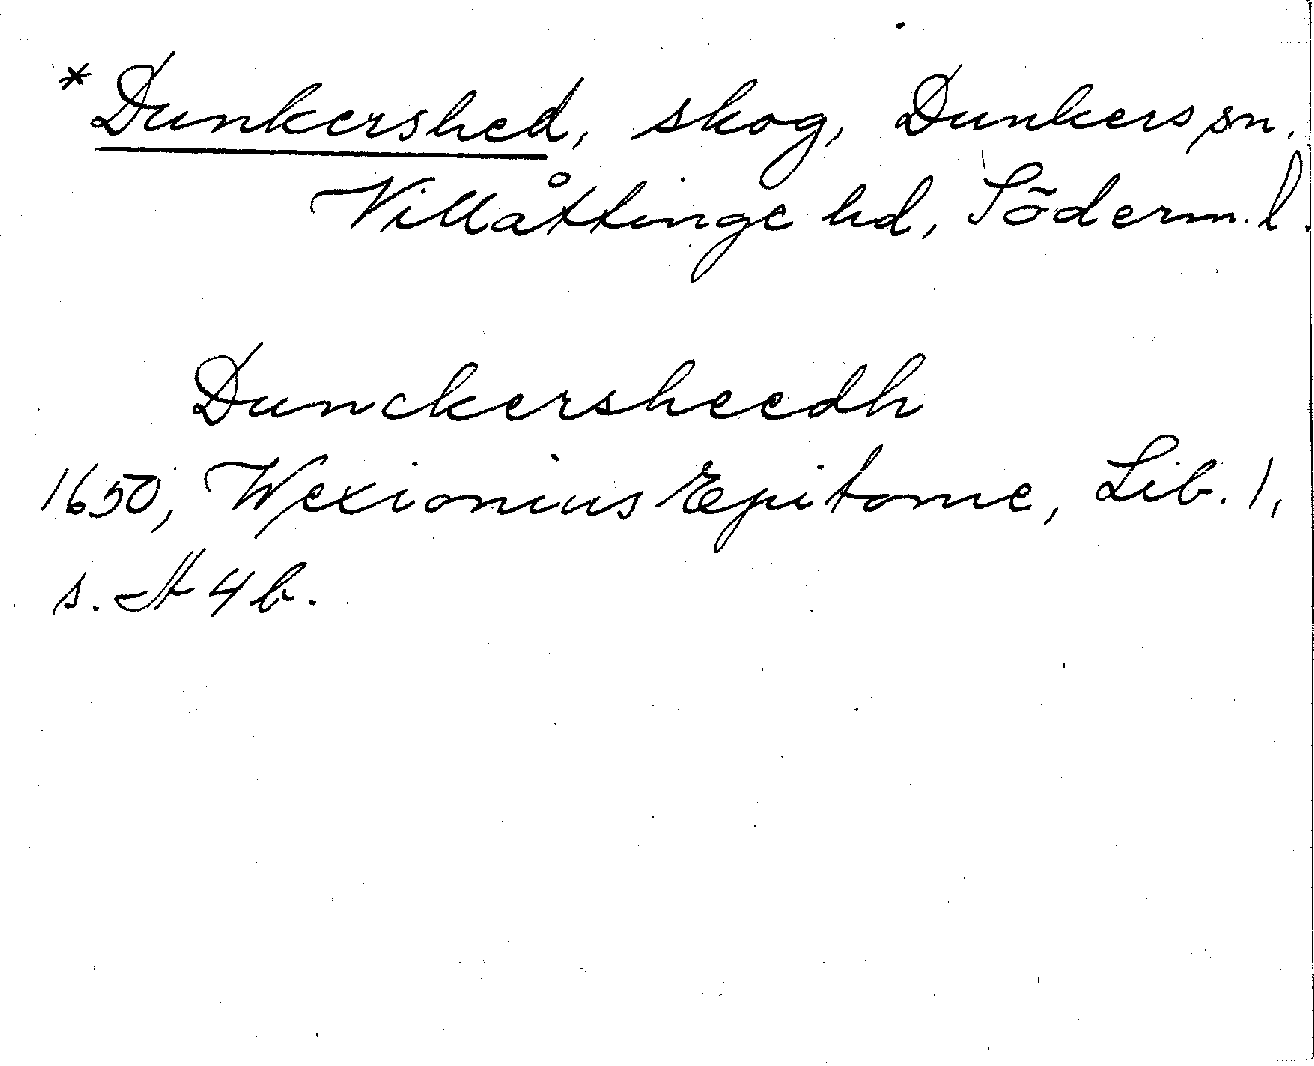 *Dunkershed, skog, Dunkers sn.
Villåttinge hd, Söderm. l.
Dunckersheedh
1650, Wexionius Epitome, Lib. 1,
s. A 4 b.